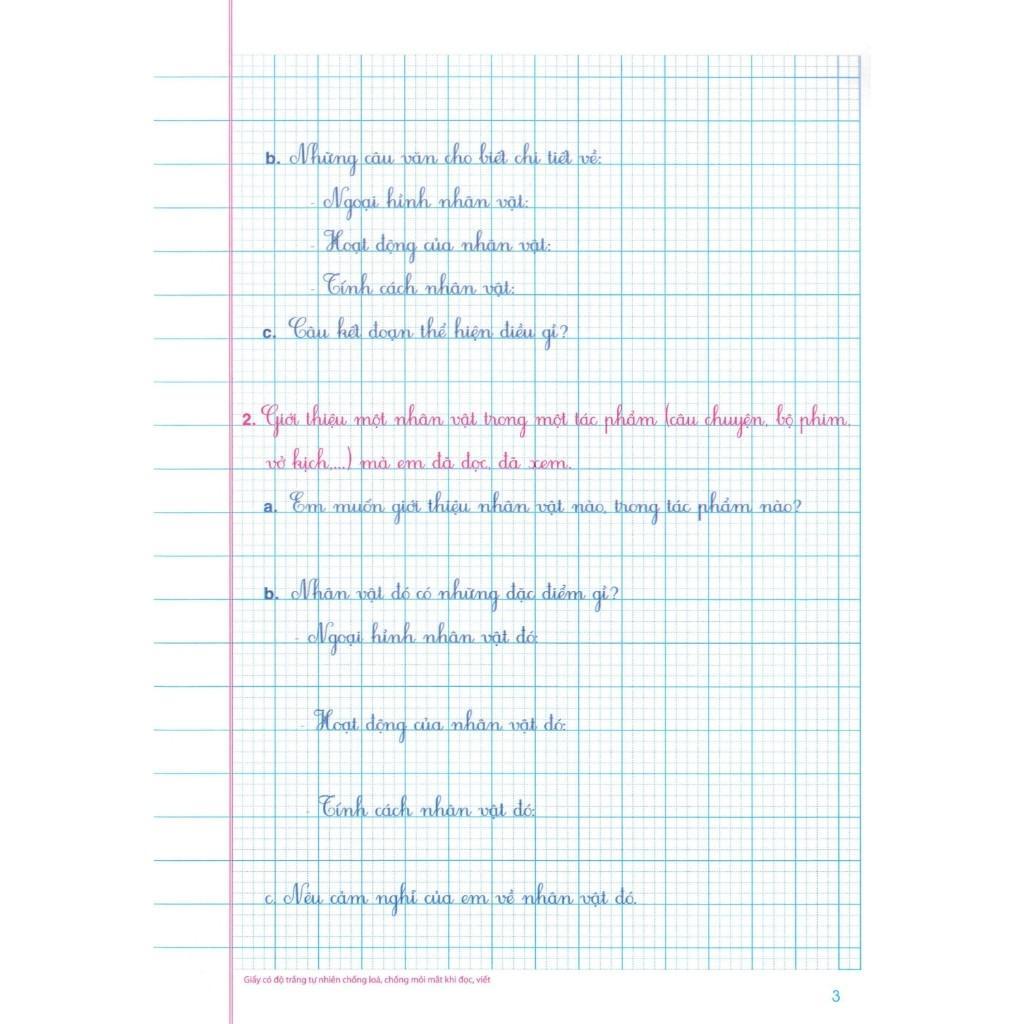 b. Những câu văn cho biết chi tiết về:
- Ngoại hình nhân vật:
- Hoạt động của nhân vật:
- Tính cách nhân vật:
c. Câu kết đoạn thể hiện điều gì?
2. Giới thiệu một nhân vật trong một tác phẩm (câu chuyện, bộ phim,
vở kịch,...) mà em đã đọc, đã xem.
a. Em muốn giới thiệu nhân vật nào, trong tác phẩm nào?
b. Nhân vật đó có những đặc điểm gì?
- Ngoại hình nhân vật đó:
- Hoạt động của nhân vật đó:
- Tính cách nhân vật đó:
c. Nêu cảm nghĩ của em về nhân vật đó.
Giấy có độ trắng tự nhiên chống loá, chống mỏi mắt khi đọc, viết
3